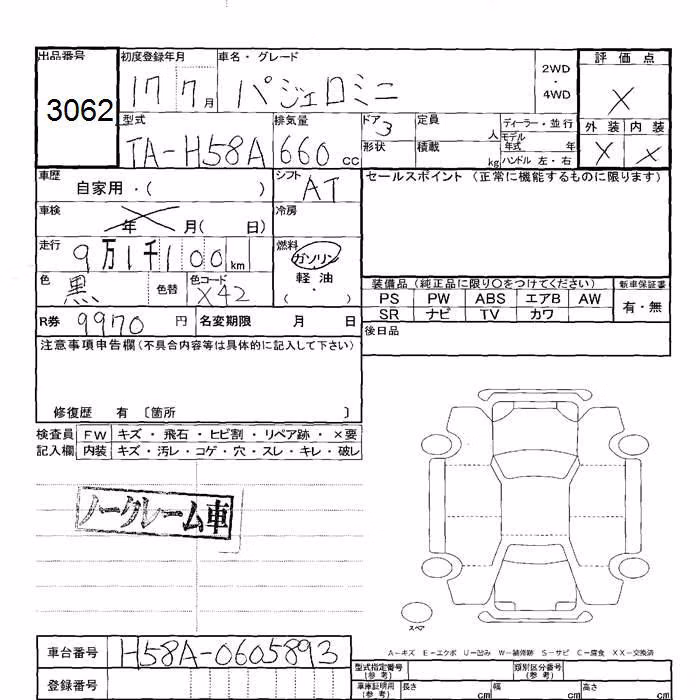 出品番号 初度登録年月 車名・グレード 2WD・4WD 評価点
3062 17 7月 パジェロミニ X
型式 排気量 ドア 定員 人 ディーラー・並行 外装 内装
TA-H58A 660cc 3 モデル年式 年 X X
形状 積載 kg ハンドル 左・右
車歴 自家用・( ) シフト AT セールスポイント (正常に機能するものに限ります)
車検 年 月( 日) 冷房
走行 9万1千100km 燃料 ガソリン
色 黒 色替 色コード X42 軽油
・( )
装備品(純正品に限り〇をつけてください) 新車保証書
PS PW ABS エアB AW 有・無
SR ナビ TV カワ
R券 9970円 名変期限 月 日
後日品
注意事項申告欄(不具合内容等は具体的に記入して下さい)
修復歴 有 〔箇所 〕
検査員 FW キズ・飛石・ヒビ割・リペア跡・×要
記入欄 内装 キズ・汚レ・コゲ・穴・スレ・キレ・破レ
ノークレーム車
スペア
A-キズ E-エクボ U-凹み W-補修跡 S-サビ C-腐食 XX-交換済
車台番号 H58A-0605893
型式指定番号(参考) 類別区分番号(参考)
登録番号
車庫証明用(参考) 長さ cm 幅 cm 高さ cm